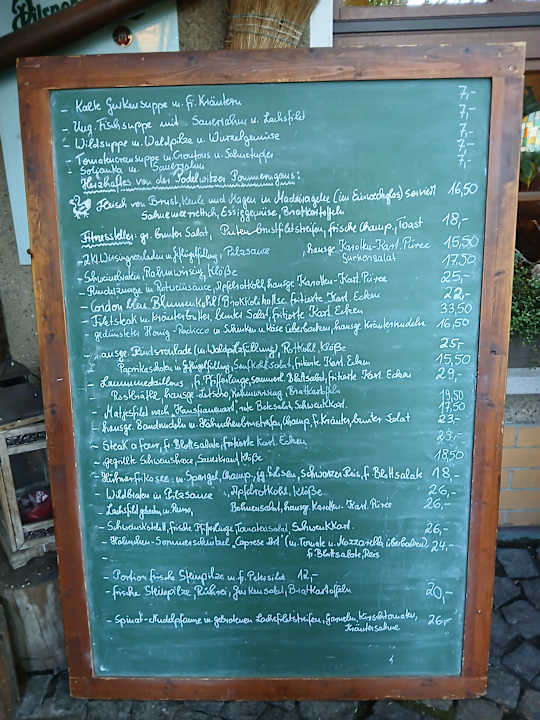 Pilsner
- Kalte Gurkensuppe m. fr. Kräutern 7,-
- Ung. Fischsuppe mit Sauerrahm u. Lachsfilet 7,-
- Wildsuppe m. Waldpilze u. Wurzelgemüse 7,-
- Tomatencremesuppe m. Croutons u. Sahnetupfer 7,-
- Soljanka m. Sauerrahm 7,-
Herzhaftes von der Podelwitzer Pommerngans:
Fleisch von Brust, Keule und Magen in Madeiragelee (im Einweckglas) serviert 16,50
Sahnemeerrettich, Essiggemüse, Bratkartoffeln
Fitnissteller: gr. bunter Salat, Putenbrustfiletstreifen, frische Champ., Toast 18,-
- 2 Kl. Wirsingrouladen m. Geflügelfüllung, Pilzsauce, hausge. Karotten-Kart. Püree 15,50
Gurkensalat
- Schweinebraten, Rahmwirsing, Klöße 17,50
- Rinderzunge in Rotweinsauce, Apfelrotkohl, hausge Karotten-Kart. Püree 25,-
- Cordon bleu, Blumenkohl/Brokkoli, fritierte Kart. Ecken 22,-
- Filetsteak m. Kräuterbutter, bunter Salat, fritierte Kart. Ecken 33,50
- gedünsteter Honig - m. Schinken u. Käse überbacken, hausge Kräuternudeln 16,50
- hausge Rindsroulade (m. Waldpilzfüllung), Rotkohl, Klöße 25,-
- Paprikaschote m. Geflügelfüllung, Senfkohlsalat, fritierte Kart. Ecken 15,50
- Lammmedaillons, fr. Pfifferlinge, Blattsalat, fritierte Kart. Ecken 29,-
- Rostbrätl, hausge Rahmwirsing, Bratkartoffeln 19,50
- Matjesfilet nach "Hausfrauenart", rote Betesalat, Schwenkkart. 17,50
- hausge. Bandnudeln m. Hähnchenbruststreifen, Champ., fr. Kräuter, bunter Salat 23,-
- Steak a four, fr. Blattsalate, fritierte Kart. Ecken 23,-
- gegrillte Schweinshaxe, Sauerkraut, Klöße 18,50
- Hühnerfrikassee m. Spargel, Champ., jg. Erbsen, Schwarzer Reis, fr. Blattsalate 18,-
- Wildbraten in Pilzsauce, Apfelrotkohl, Klöße 26,-
- Lachsfilet gebraten, Bohnensalat, hausge Karotten-Kart. Püree 26,-
- Schweinskotelett, frische Pfifferlinge, Tomatensalat, Schwenkkart. 26,-
- Hähnchen-Sommerschnitzel "Caprese Art" (m. Tomate u. Mozzarella überbacken) 24,-
fr. Blattsalate, Reis
- Portion frische Steinpilze m. fr. Petersilie 12,-
- frische Steinpilze, Rührei, Gurkensalat, Bratkartoffeln 20,-
- Spinat-Nudelpfanne m. gebratenen Lachsfiletstreifen, Garnelen, Kirschtomaten, 26,-
Kräutersahne